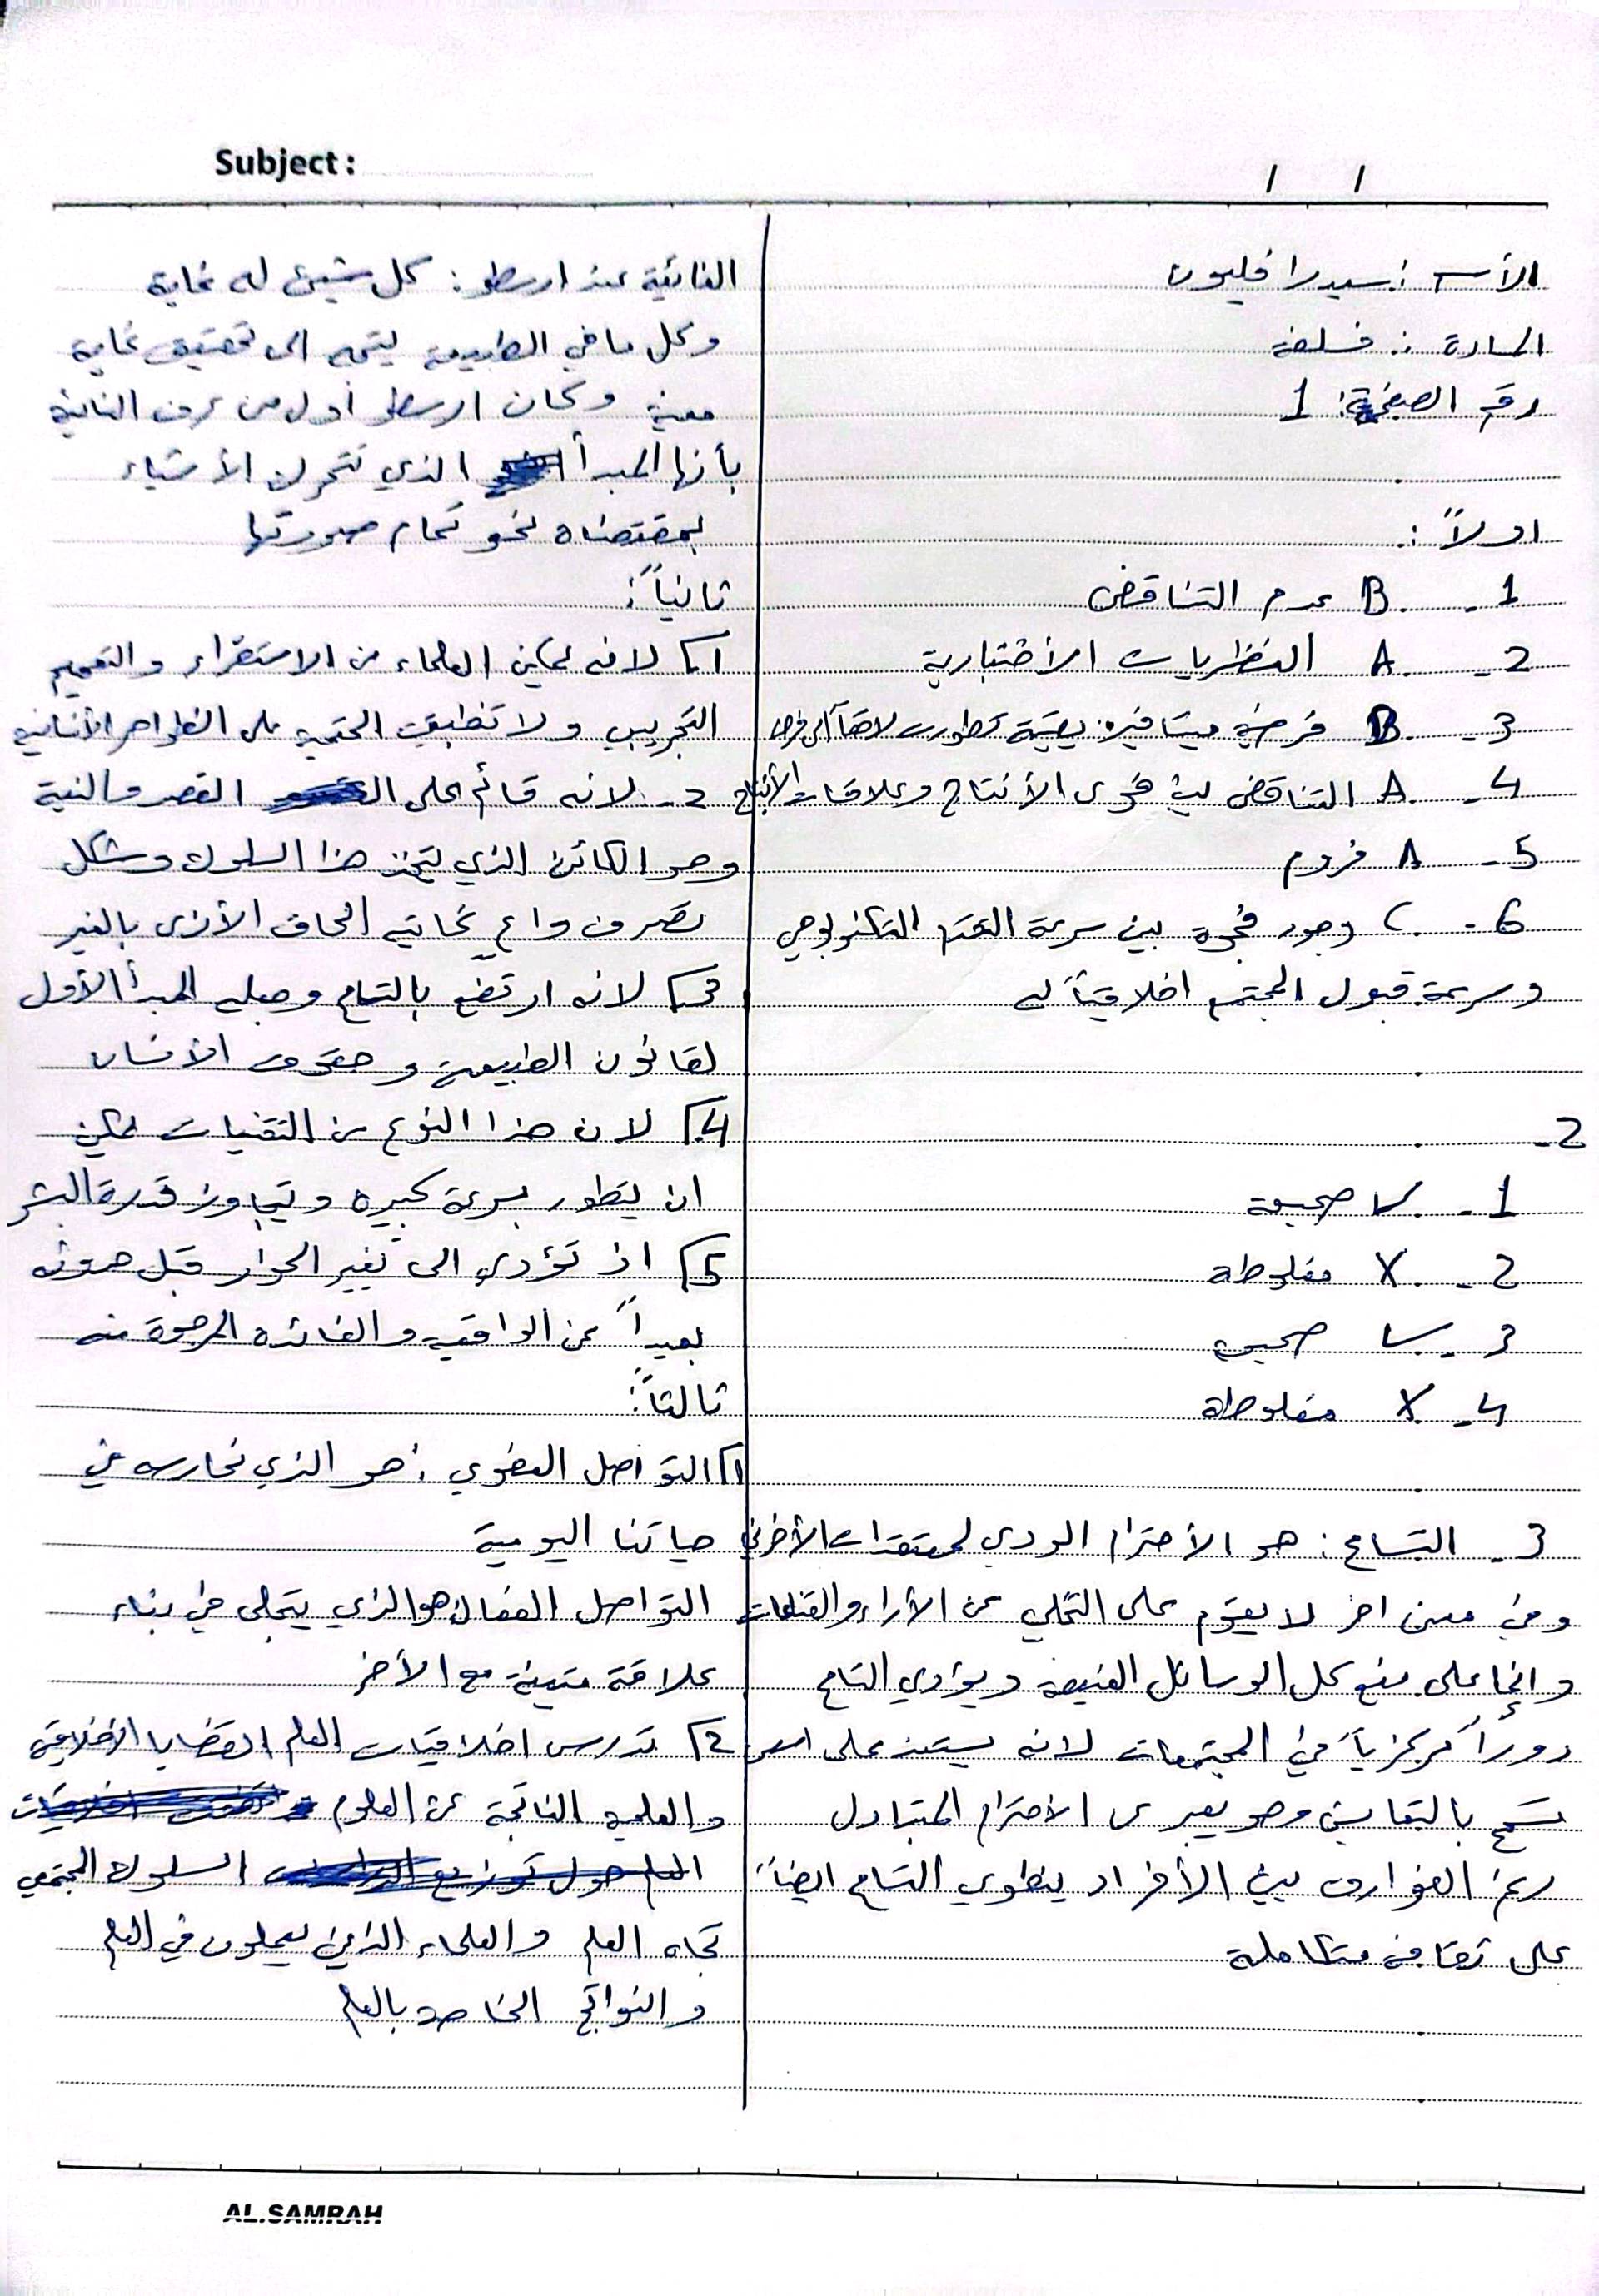 Subject :
/ /
الأسم : سيدرا فليون
المادة : فلسفة
رقم الصفحة : 1
اولاً :
1 - B عدم التناقض
2 - A النظريات الأختبارية
3 - B فرضية ميتافيزيقية تطورت لاحقاً الى
4 - A التناقض بين قوى الأنتاج وعلاقات الأنتاج
5 - A فروم
6 - C وجود فجوة بين سرعة التقدم التكنولوجي
وسرعة قبول المجتمع اخلاقياً له
2 -
1 - ✓ صحيحة
2 - X مغلوطة
3 - ✓ صحيحة
4 - X مغلوطة
3 - التسامح : هو الأحترام الودي لمعتقدات الأخرين
وفي معنى اخر لا يقوم على التخلي عن الأراء والقناعات
وانما على منع كل الوسائل العنيفة ويؤدي التسامح
دوراً مركزياً في المجتمعات لانه يستند على اسس
تسمح بالتعايش وهو يعبر عن الأحترام المتبادل
رغم الفوارق بين الأفراد ينطوي التسامح ايضاً
على ثقافة متكاملة
الغائية عند ارسطو : كل شيئ له غاية
وكل ما في الطبيعة يتجه الى تحقيق غاية
معينة وكان ارسطو أول من عرف الغائية
بأنها المبدأ الذي تتحرك الأشياء
بمقتضاه نحو تمام صورتها
ثانياً :
1) لانه يمكن العلماء من الاستقراء والتعميم
التجريبي ولا تنطبق الحتمية على الظواهر الأنسانية
2 - لانه قائم على القصد والنية
وهو الكائن الذي يتخذ هذا السلوك وشكل
تصرف واعٍ غايته الحاق الأذى بالغير
3) لانه ارتفع بالتسامح وجعله المبدأ الأول
لقانون الطبيعة وحقوق الأنسان
4) لان هذا النوع من التقنيات يمكن
ان يتطور بسرعة كبيرة ويتجاوز قدرة البشر
5) اذ تؤدي الى تغير الحوار قبل حدوثه
بعيداً عن الواقعية والفائدة المرجوة منه
ثالثاً :
1) التواصل العفوي : هو الذي نمارسه في
حياتنا اليومية
التواصل الفعال هو الذي يتجلى في بناء
علاقة متينة مع الأخر
2) تدرس اخلاقيات العلم القضايا الأخلاقية
والعلمية الناتجة عن العلوم
السلوك المجتمعي
تجاه العلم والعلماء الذين يعملون في العلم
والنواتج الخاصة بالعلم
AL.SAMRAH